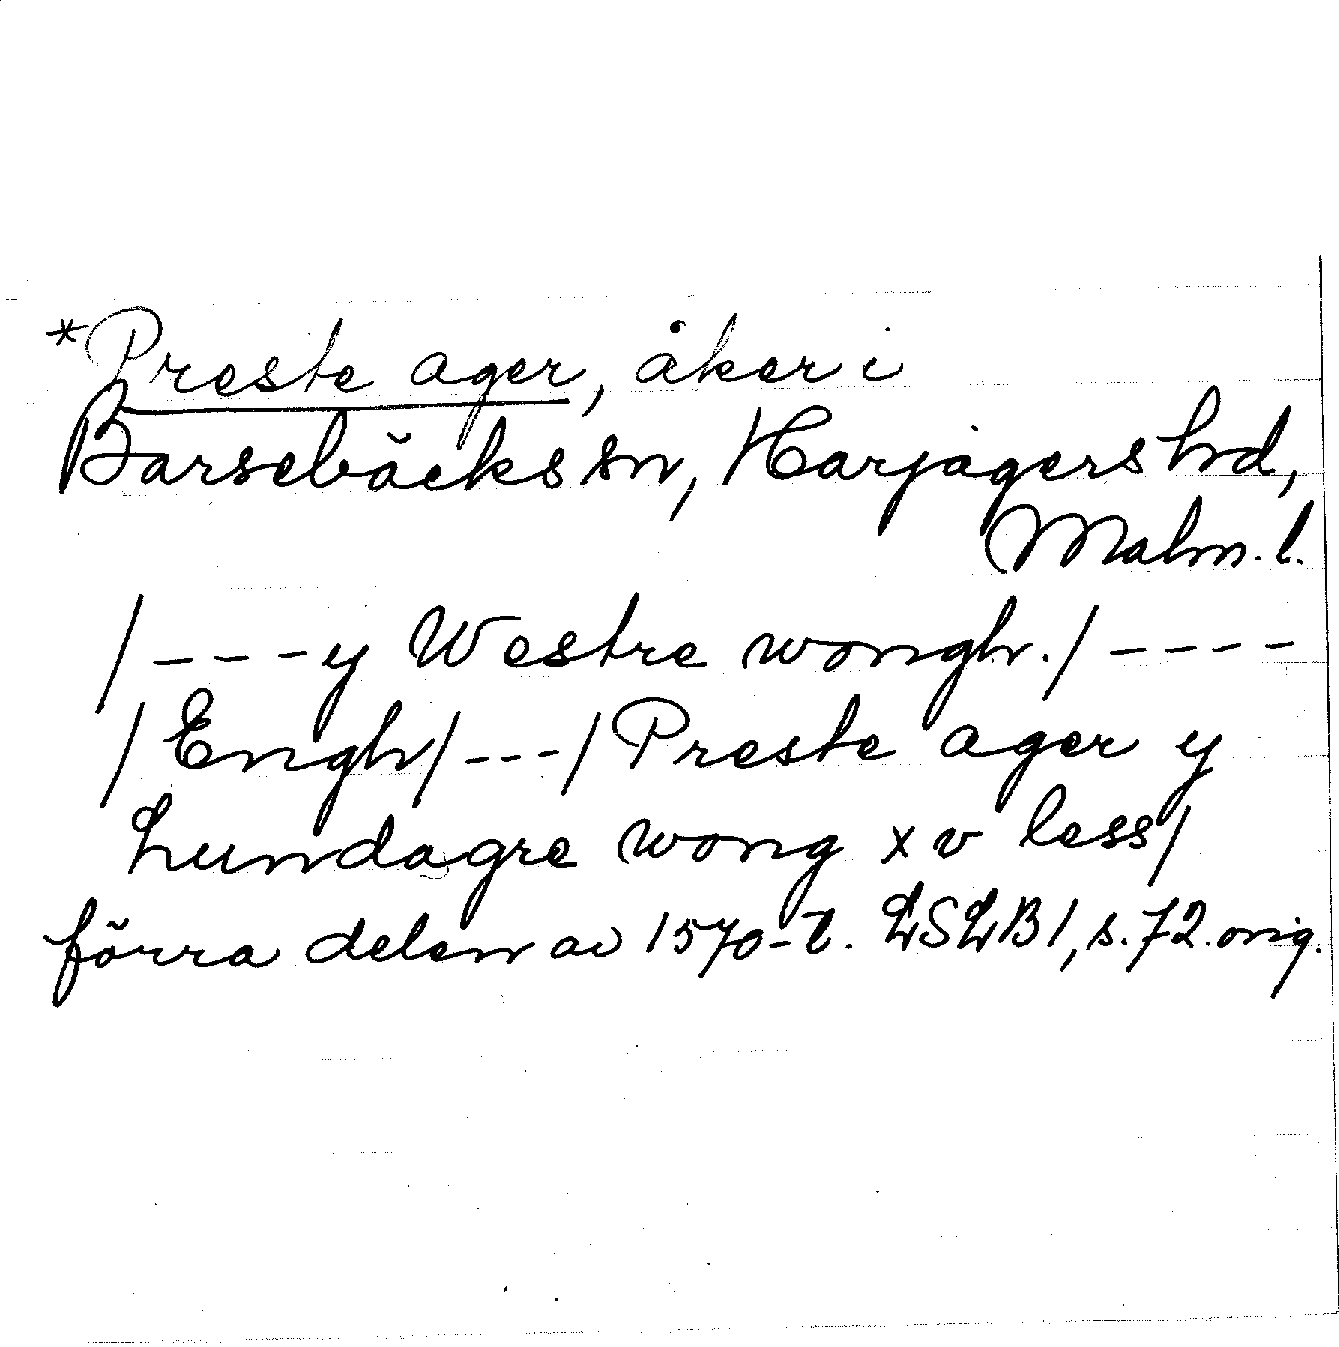 *Preste ager, åker i
Barsebäcks sn, Harjagers hd,
Malm. l.
/ - - - y Westre wongh. / - - - -
/ Engh / - - - / Preste ager y
hundagre wong xv less /
förra delen av 1570-t. LSLB 1, s. 72. orig.